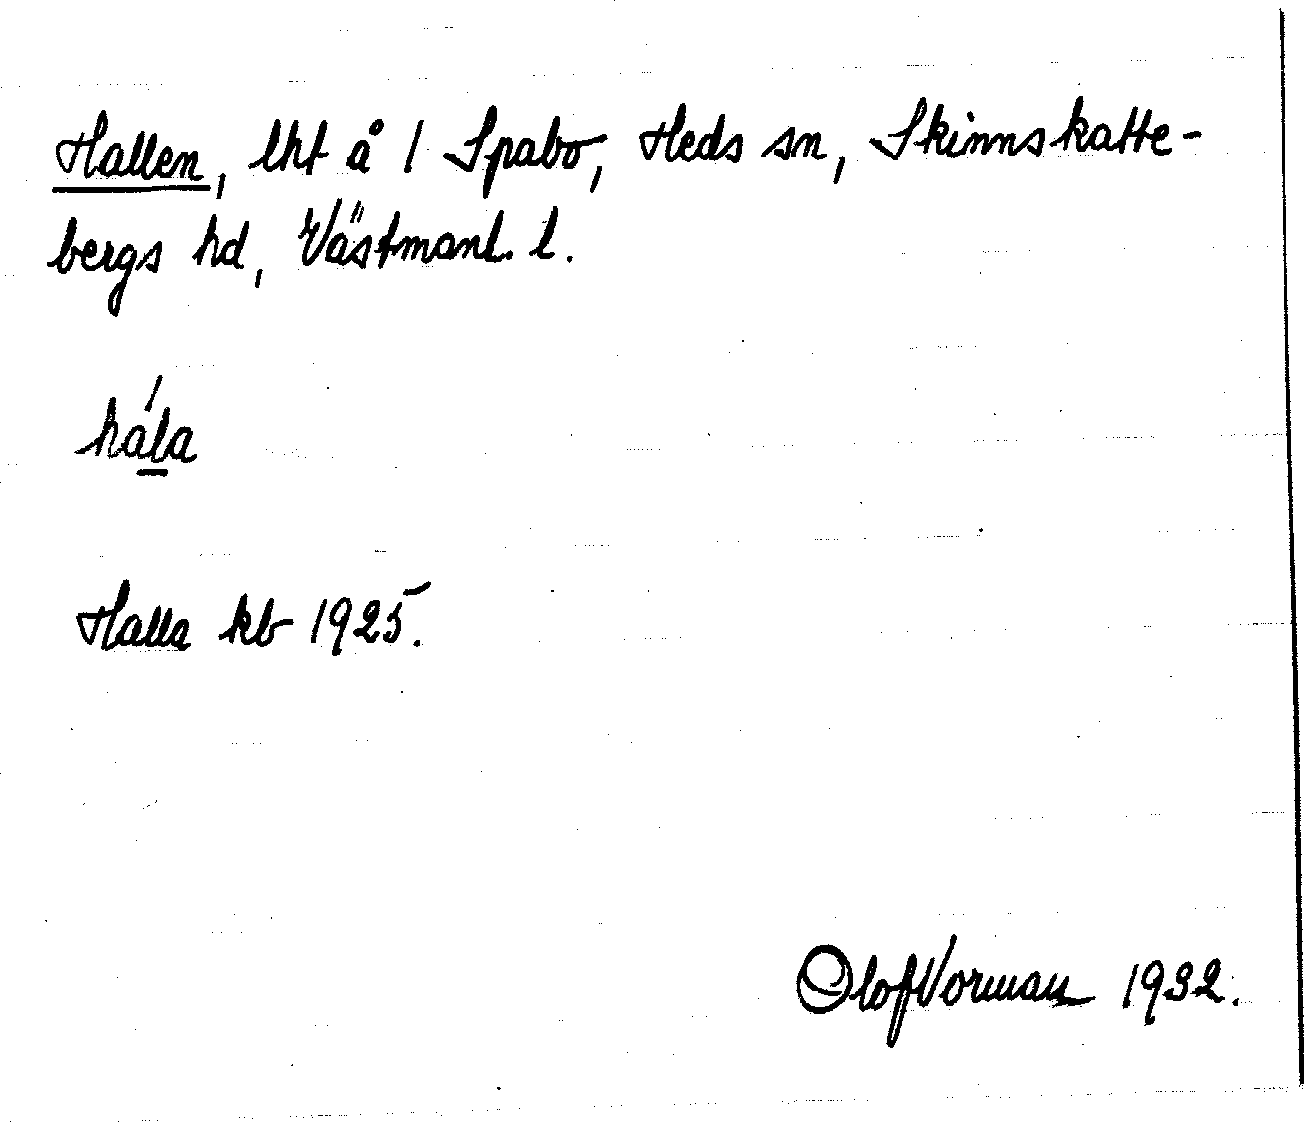 Hallen, lht å 1 Spabo, Heds sn, Skinnskatte-
bergs hd, Västmanl. l.
hála
Halla kb 1925.
Olof Vorman 1932.